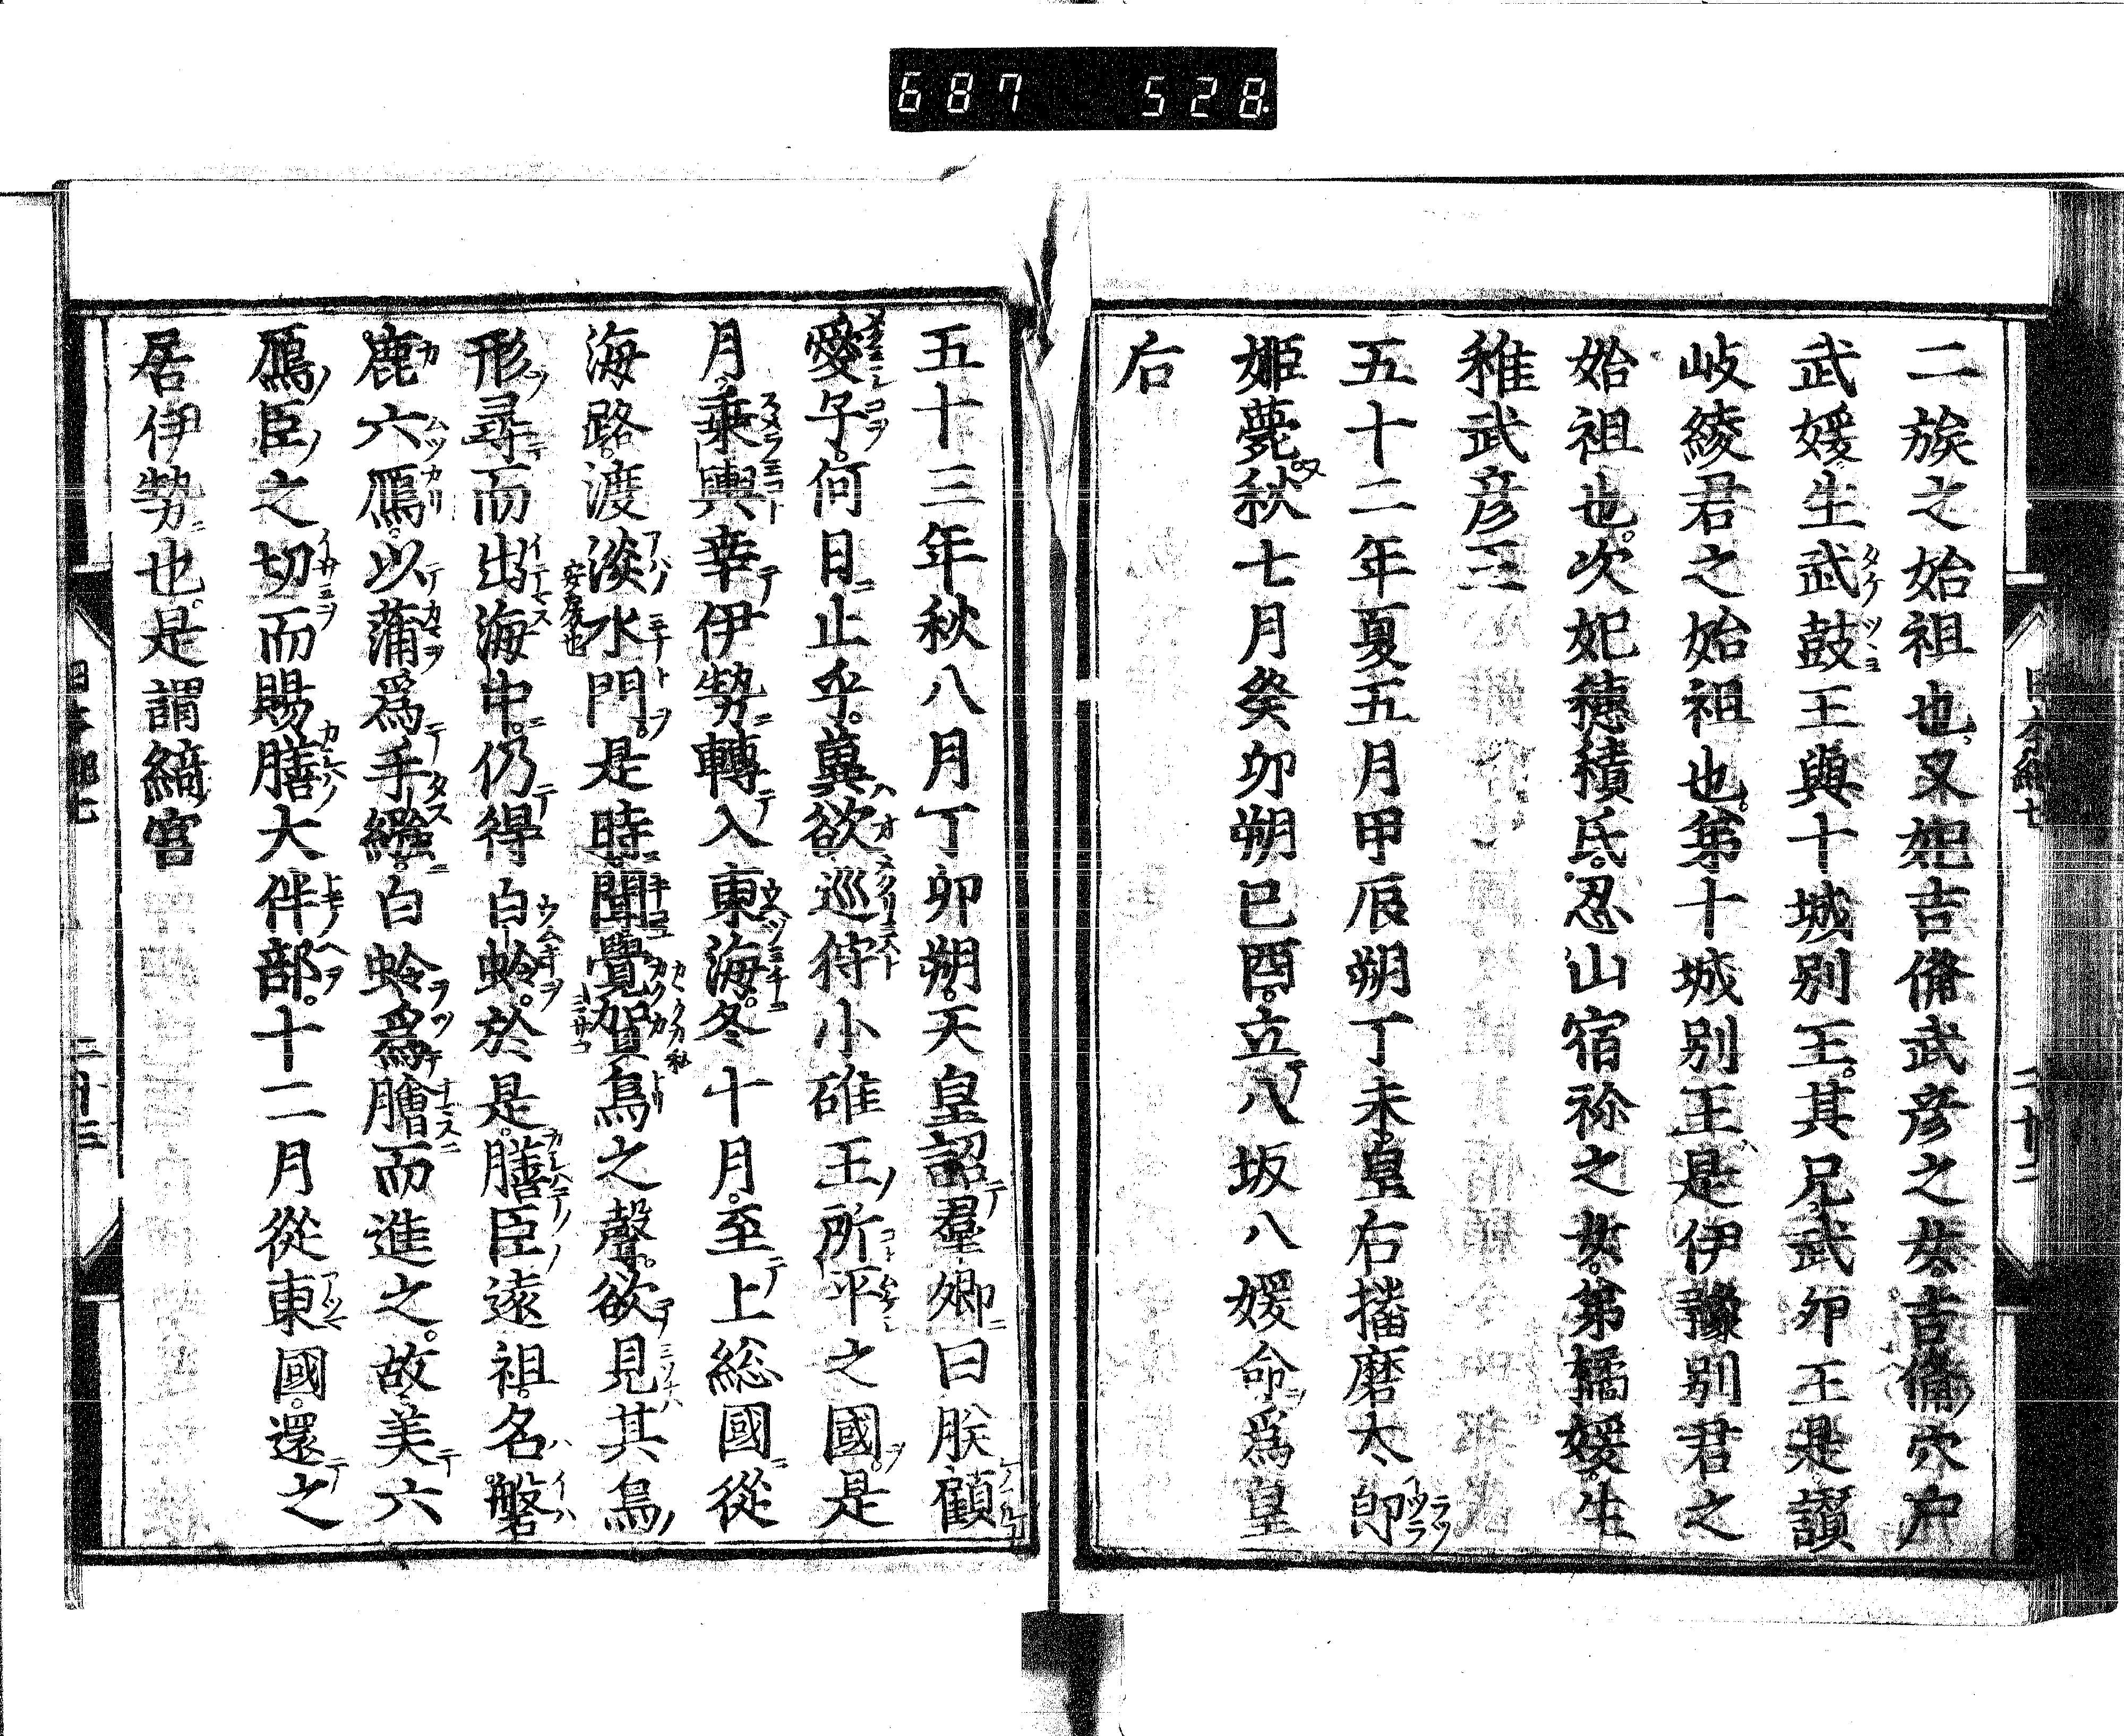 687 528
二族之始祖也。又妃吉備武彦之女。吉備穴戸
武媛生武鼓王與十城別王。其兄武卯王是讃
岐綾君之始祖也。第十城別王是伊豫別君之
始祖也。次妃穂積氏忍山宿祢之女。弟橘媛。生
稚武彦王
五十二年夏五月甲辰朔丁未皇后播磨太郎
姫薨秋七月癸卯朔己酉。立八坂八媛命爲皇
后
五十三年秋八月丁卯朔。天皇詔羣卿曰朕顧
愛子。何日止乎。冀欲巡狩小碓王所平之國。是
月乗輿幸伊勢轉入東海。冬十月。至上総國從
海路。渡淡水門。是時聞覺賀鳥之聲。欲見其鳥
形尋而出海中。仍得白蛤。於是。膳臣遠祖。名磐
鹿六鴈。以蒲爲手繦。白蛤爲膾而進之。故美六
鴈臣之功而賜膳大伴部。十二月從東國。還之
居伊勢也。是謂綺宮